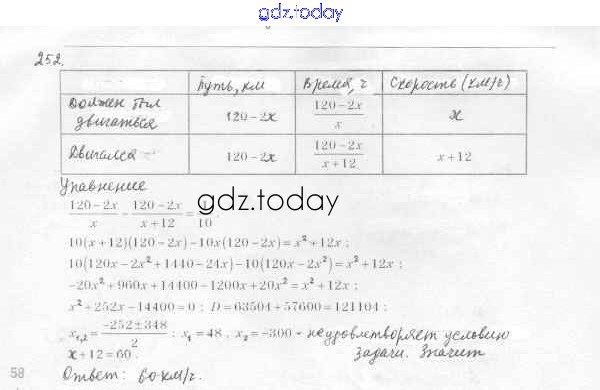 gdz.today
252.
Путь, км Время, ч Скорость (км/ч)
Должен был двигаться 120-2x (120-2x)/x x
Двигался 120-2x (120-2x)/(x+12) x+12
Упавнение
(120-2x)/x - (120-2x)/(x+12) = 1/10.
gdz.today
10(x+12)(120-2x)-10x(120-2x)=x²+12x;
10(120x-2x²+1440-24x)-10(120x-2x²)=x²+12x;
-20x²+960x+14400-1200x+20x²=x²+12x;
x²+252x-14400=0; D=63504+57600=121104;
x₁,₂=(-252±348)/2; x₁=48, x₂=-300 - не удовлетворяет условию
x+12=60. задачи. Значит
58
Ответ: 60 км/ч.